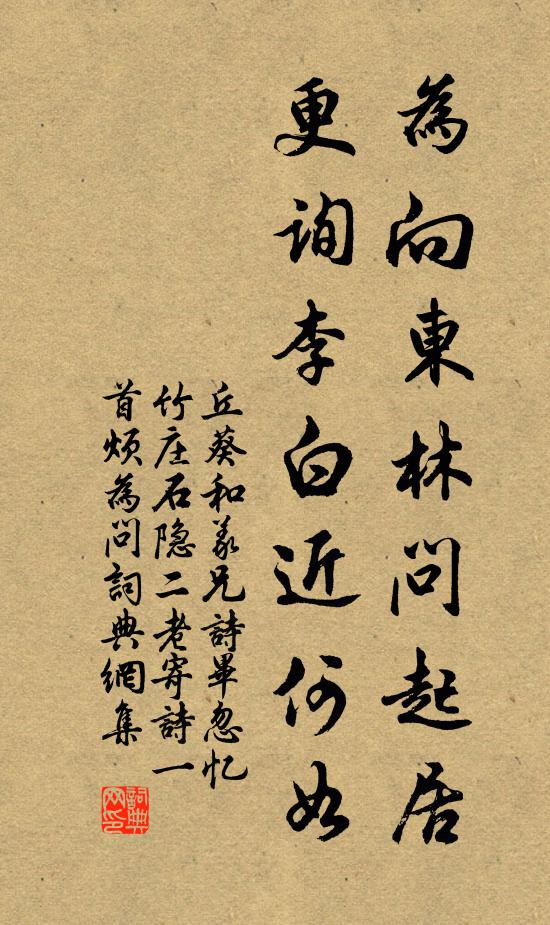 為向東林問起居
更詢李白近何如
丘葵和義兄詩畢忽忆
竹庄石隐二老寄詩一
首煩為問詞典網集
詞典
网印